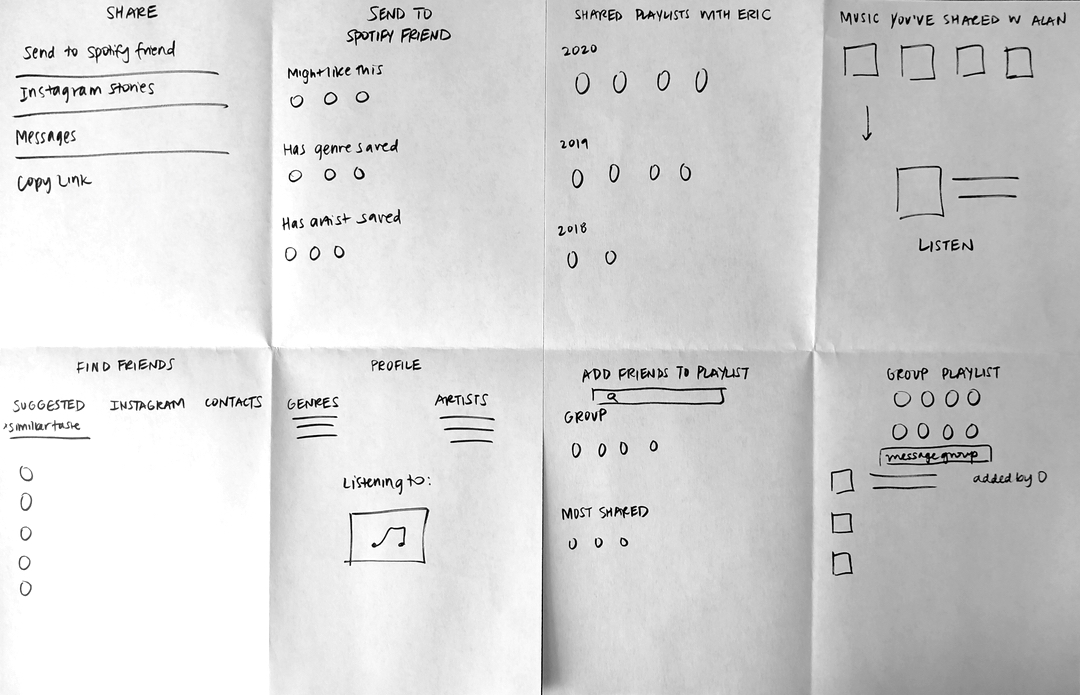 SHARE
Send to Spotify friend
Instagram Stories
Messages
Copy Link
SEND TO
SPOTIFY FRIEND
Might like this
Has genre saved
Has artist saved
SHARED PLAYLISTS WITH ERIC
2020
2019
2018
MUSIC YOU'VE SHARED W ALAN
LISTEN
FIND FRIENDS
SUGGESTED INSTAGRAM CONTACTS
>similar taste
PROFILE
GENRES ARTISTS
Listening to:
ADD FRIENDS TO PLAYLIST
GROUP
MOST SHARED
GROUP PLAYLIST
message group
added by O